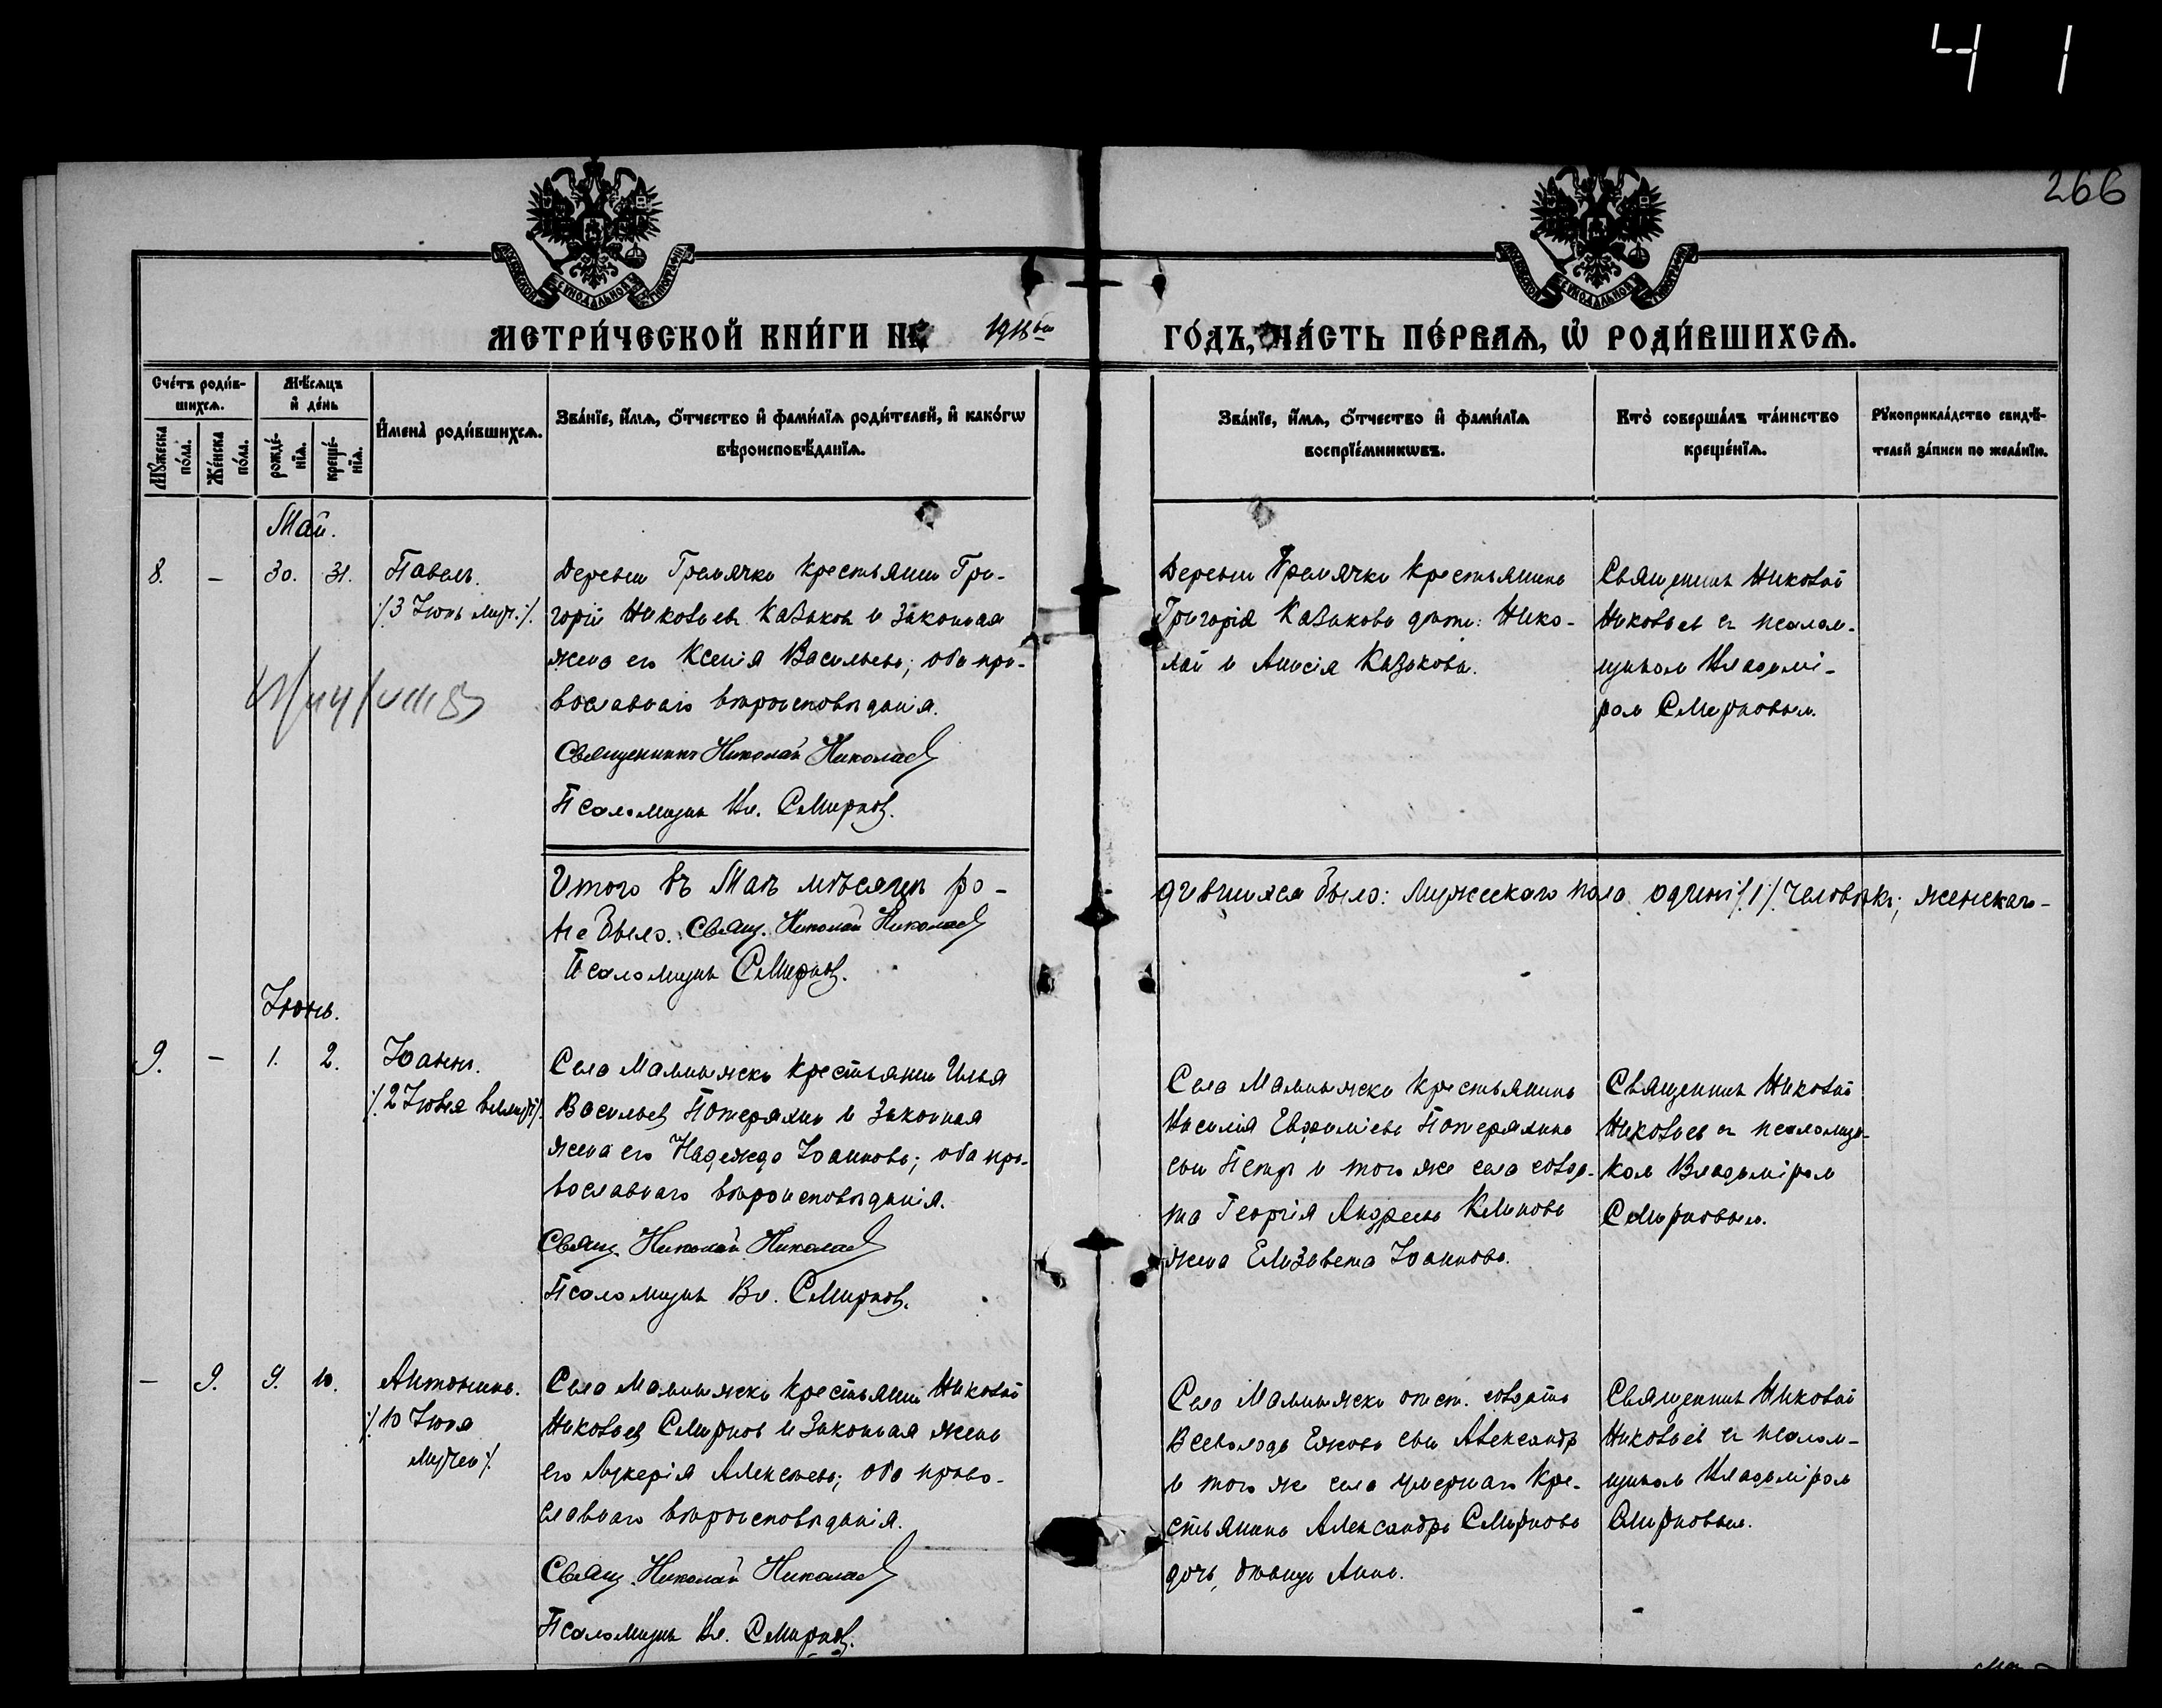 4 1
266
МЕТРИ́ЧЕСКОЙ КНИ́ГИ НА 1918 ГО́ДЪ, ЧА́СТЬ ПЕ́РВАѦ, Ѡ РОДИ́ВШИХСѦ.
Сче́тъ роди́в-
шихсѧ.
Мѣ́сѧцъ
и́ де́нь
Мꙋ́жеска
по́ла.
Же́нска
по́ла.
рожде́-
нїѧ.
креще́-
нїѧ.
И҆мена̀ роди́вшихсѧ.
Зва́нїе, и҆́мѧ, о҆́тчество и҆ фами́лїѧ роди́телей, и҆ како́гѡ
вѣроисповѣ́данїѧ.
Зва́нїе, и҆́мѧ, о҆́тчество и҆ фами́лїѧ
воспрїе́мникѡвъ.
Кто̀ соверша́лъ та́инство
креще́нїѧ.
Рꙋкоприкла́дство свидѣ́-
телей за́писи по жела́нїю.
Май.
8. – 30. 31.
Павелъ.
/3 Іюнь муч./.
Деревни Гремячки крестьянин Гри-
горій Николаев Казаков и законная
жена его Ксенія Васильева; оба пра-
вославнаго вѣроисповѣданія.
Священникъ Николай Николаев
Псаломщик Вл. Смирнов.
Деревни Гремячки крестьянина
Григорія Казакова дѣти: Нико-
лай и Анисія Казаковы.
Священник Николай
Николаев съ псалом-
щиком Владимі-
ром Смирновым.
Итого въ Маѣ мѣсяцѣ ро-
дившихся было: мужескаго пола один /1/ человѣкъ; женскаго –
не было. Свящ. Николай Николаев
Псаломщик Смирнов.
Іюнь.
9. – 1. 2.
Іоаннъ.
/2 Іюня
Села Мамлыжски крестьянин Илья
Васильев Потеряхин и законная
жена его Надежда Іоаннова; оба пра-
вославнаго вѣроисповѣданія.
Свящ. Николай Николаев
Псаломщик Вл. Смирнов.
Села крестьянина
Василія Евфиміева Потеряхина
сын Петр и того же села солда-
та Георгія Андреева Климова
жена Елизавета Іоаннова.
Священник Николай
Николаев съ псаломщи-
ком Владиміром
Смирновым.
– 9. 9. 10.
Антонина.
/10 Іюня
мучен/.
Села крестьянин Николай
Николаев Смирнов и законная жена
его Лукерія Алексѣева; оба право-
славнаго вѣроисповѣданія.
Свящ. Николай Николаев
Псаломщик Вл. Смирнов.
Села отст. солдата
Всеволода Ежова сын Александр
и того же села умершаго кре-
стьянина Александра Смирнова
дочь, дѣвица Анна.
Священник Николай
Николаев съ псалом-
щиком Владиміром
Смирновым.